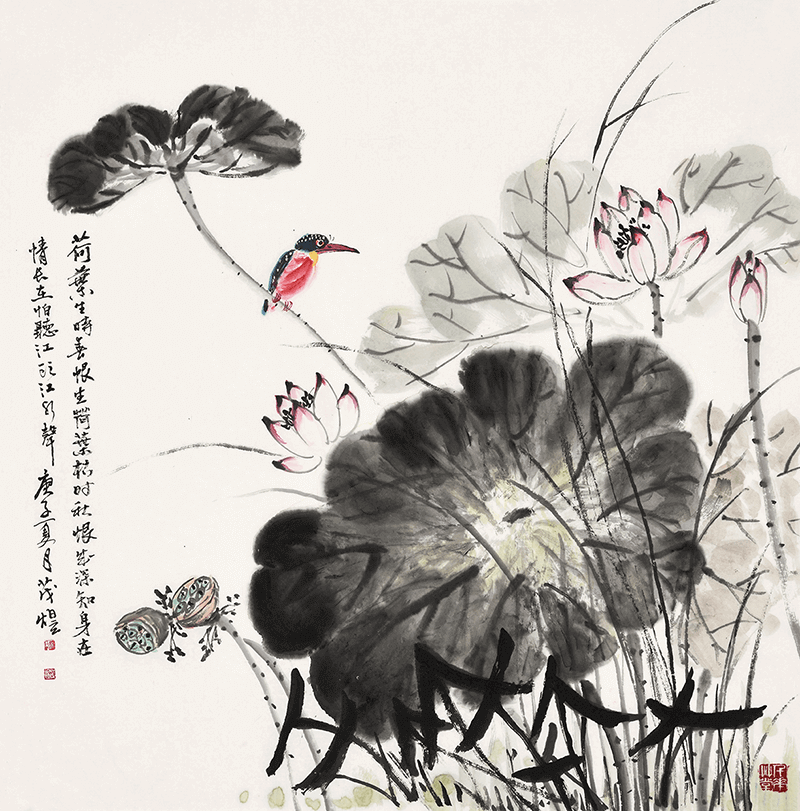 荷葉生時春恨生荷葉枯时秋恨成深知身在
情长在怕聽江头江水聲 庚子夏月茂